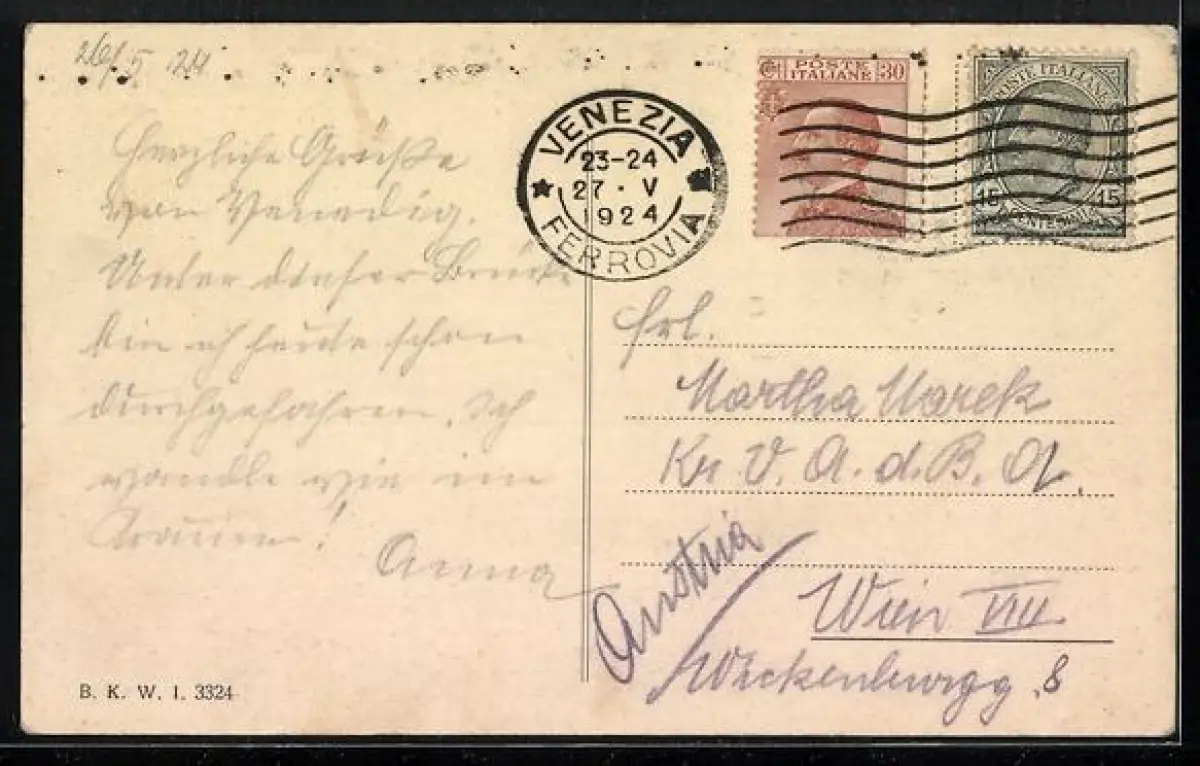 26/5 24
Herzliche Grüße
von Venedig.
Unter dieser Brücke
bin ich heute schon
durchgefahren. Ich
wandle wie im
Traume!
Anna
B. K. W. I. 3324
VENEZIA
23-24
27 · V
1924
FERROVIA
POSTE
ITALIANE
30
POSTE ITALIANE
15 15
Frl.
Martha Marek
Kr. V. A. d. B. A.
Austria
Wien VIII
Wickenburgg. 8